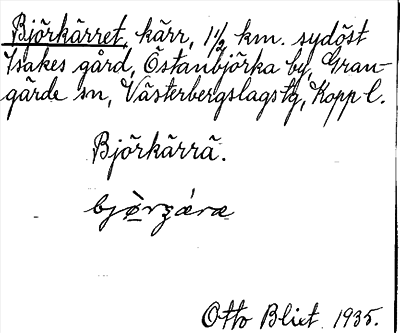 Björkärret, kärr, 1 1/2 km. sydöst
Isakes gård, Östanbjörka by, Gran-
gärde sn, Västerbergslags tg, Kopp l.
Björkärrä.
Otto Blixt 1935.